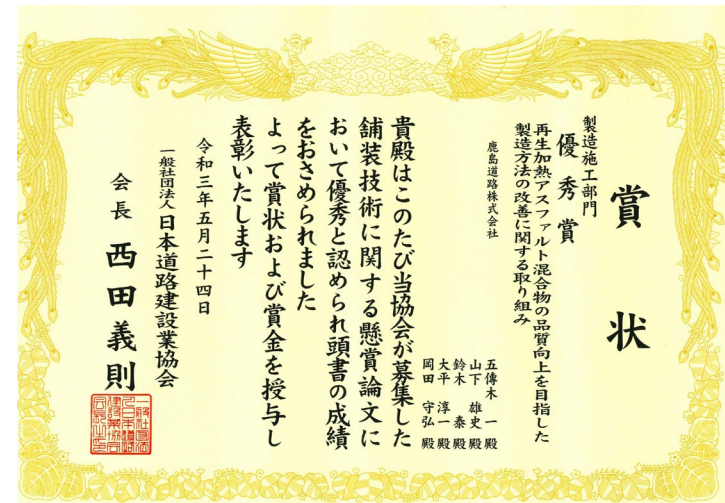 賞状
製造施工部門
優秀賞
再生加熱アスファルト混合物の品質向上を目指した
製造方法の改善に関する取り組み
鹿島道路株式会社
五傳木 一 殿
山下 雄史 殿
鈴木 泰 殿
大平 淳一 殿
岡田 守弘 殿
貴殿はこのたび当協会が募集した
舗装技術に関する懸賞論文に
おいて優秀と認められ頭書の成績
をおさめられました
よって賞状および賞金を授与し
表彰いたします
令和三年五月二十四日
一般社団法人日本道路建設業協会
会長 西田義則